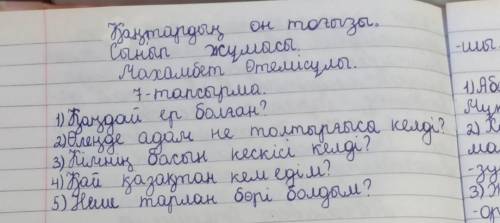 Қаңтардың он тоғызы.
Сынып жұмасы.
Махамбет Өтемісұлы.
7-тапсырма.
1) Қандай ер болған?
2) Өлеңде адам не толтырғыса келді?
3) Кімнің басын кескісі келді?
4) Қай қазақтан кем едім?
5) Неше тарлан бөрі болдым?
-шы.
1) Аба
Мұх
2) К
ма
-зу
3) Ж
-ор